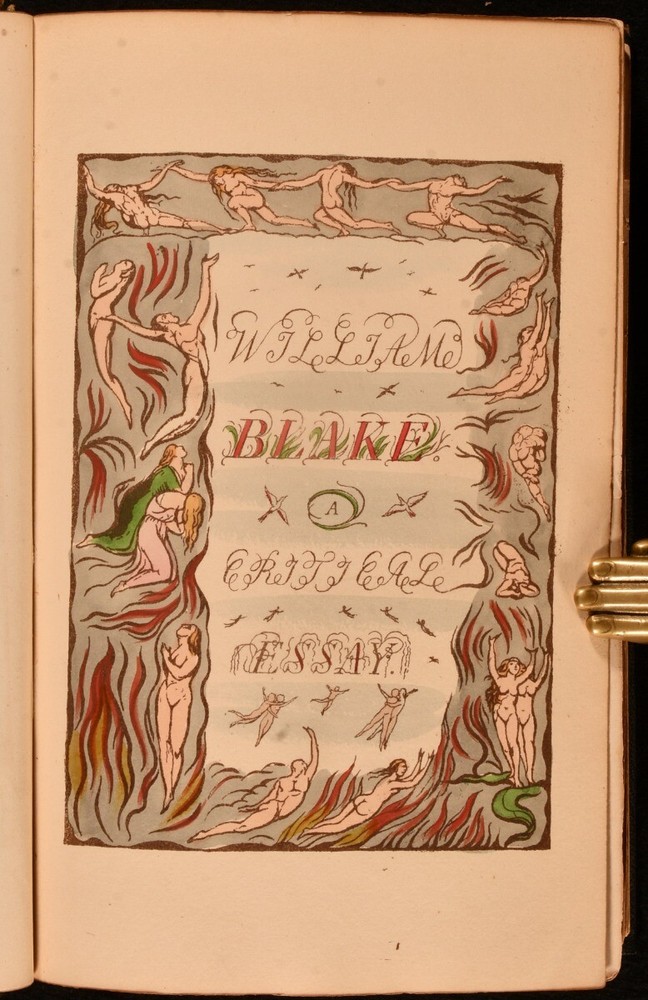 WILLIAM
BLAKE.
A
CRITICAL
ESSAY.